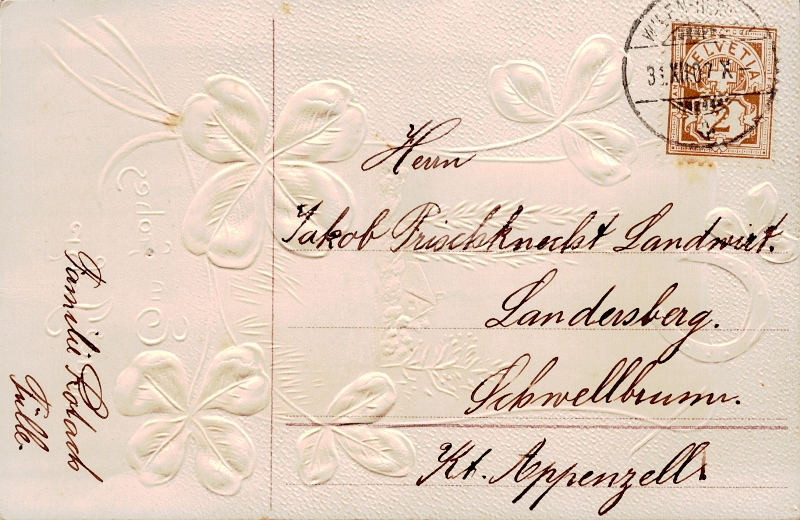 HELVETIA
2
31.XII.07.X
Herrn
Jakob Frischknecht Landwirt.
Landersberg.
Schwellbrunn.
Kt. Appenzell.
Familie Rotach